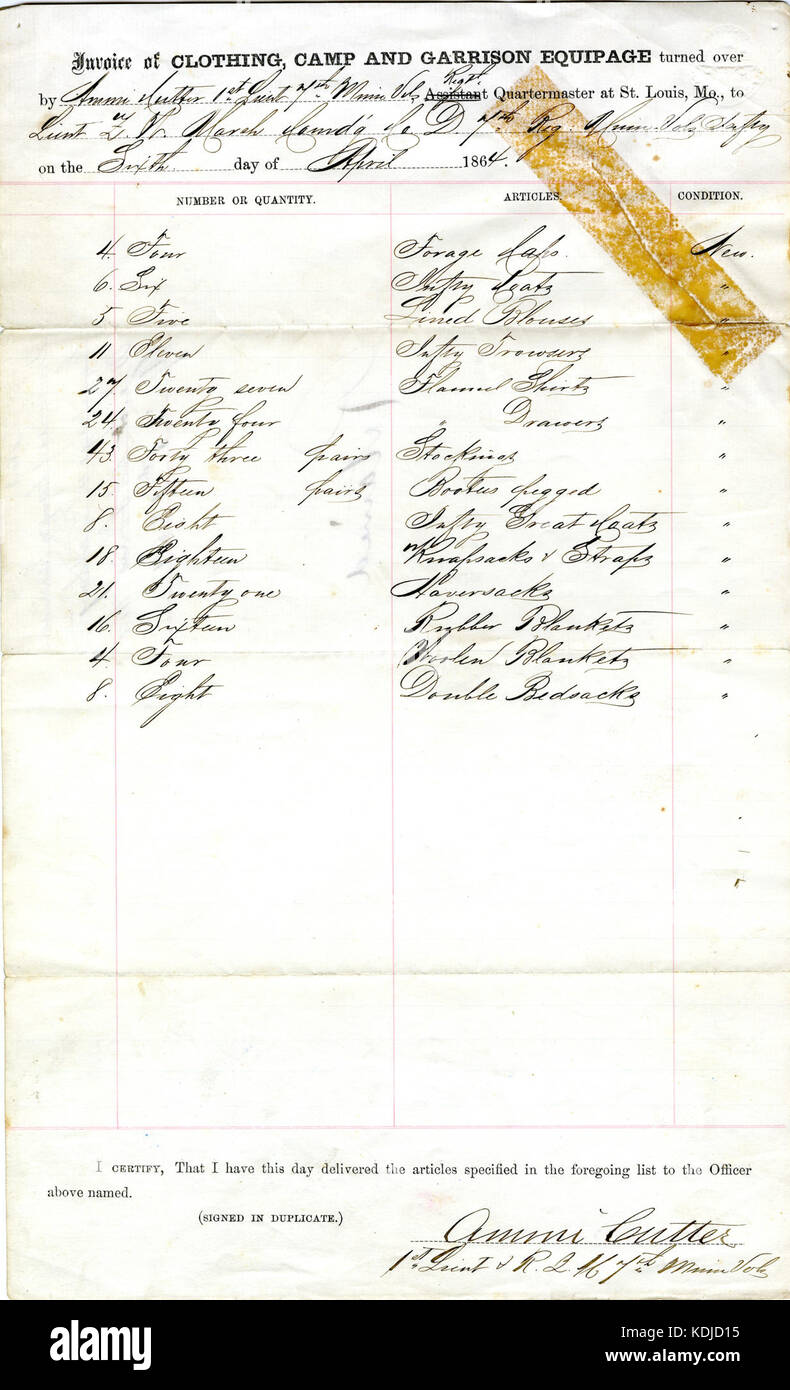 Invoice of CLOTHING, CAMP AND GARRISON EQUIPAGE turned over
by Ammi Cutter 1st Lieut 7th Minn Vols Regtl. Assistant Quartermaster at St. Louis, Mo., to
Lieut Marsh Comd'g Co D. 7th Reg. Minn Vols Infty
on the Sixth day of April 1864.
NUMBER OR QUANTITY. ARTICLES. CONDITION.
4. Four Forage Caps. New.
6. Six Infty Coats "
5 Five Lined Blouses "
11 Eleven Infty Trowsers "
27. Twenty seven Flannel Shirts "
24. Twenty four " Drawers "
43. Forty three pairs Stockings "
15. Fifteen pairs Bootees pegged "
8. Eight Infty Great Coats "
18. Eighteen Knapsacks & Straps "
21. Twenty one Haversacks "
16. Sixteen Rubber Blankets "
4 Four Woolen Blankets "
8. Eight Double Bedsacks "
I CERTIFY, That I have this day delivered the articles specified in the foregoing list to the Officer
above named.
(SIGNED IN DUPLICATE.)
Ammi Cutter
1st Lieut & R. Q. M 7th Minn Vols
alamy
Image ID: KDJD15
www.alamy.com